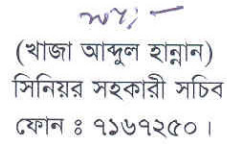 (খাজা আব্দুল হান্নান)
সিনিয়র সহকারী সচিব
ফোন ঃ ৭১৬৭২৫০।